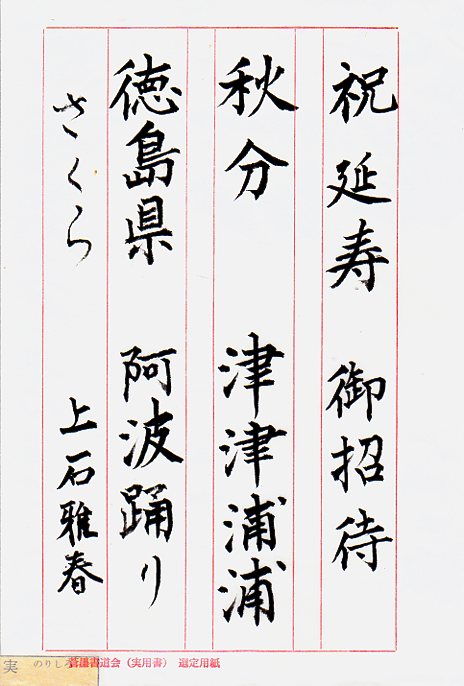 祝延寿 御招待
秋分 津津浦浦
徳島県 阿波踊り
さくら 上石雅春
実 のりしろ
書道会(実用書) 選定用紙